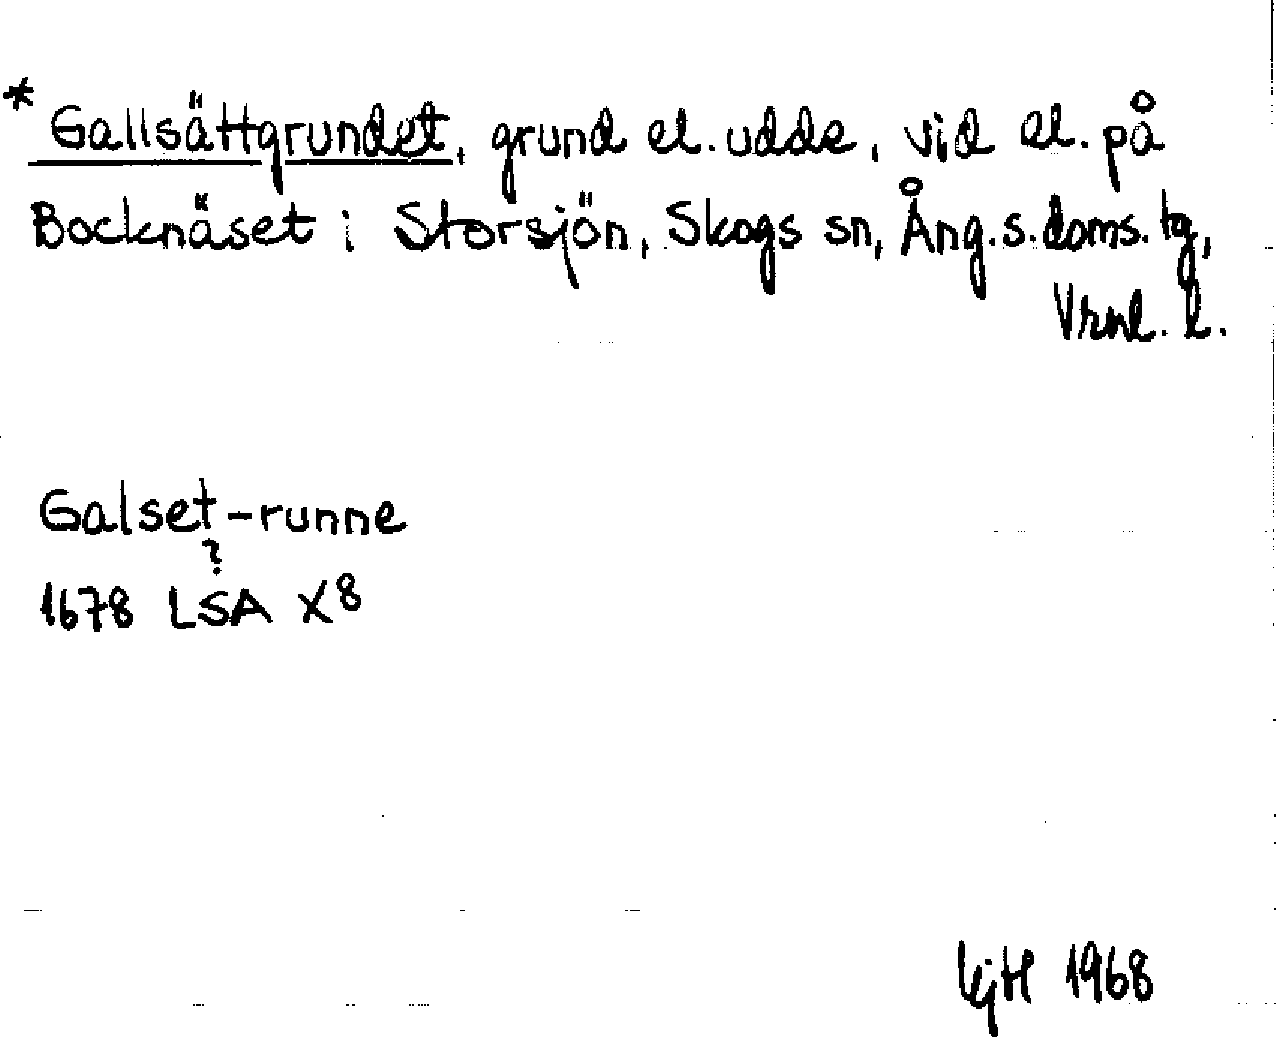 * Gallsättgrundet, grund el. udde, vid el. på
Bocknäset i Storsjön, Skogs sn, Ång. s. doms. tg,
Vrml. l.
Galset-runne
?
1678 LSA X8
1968